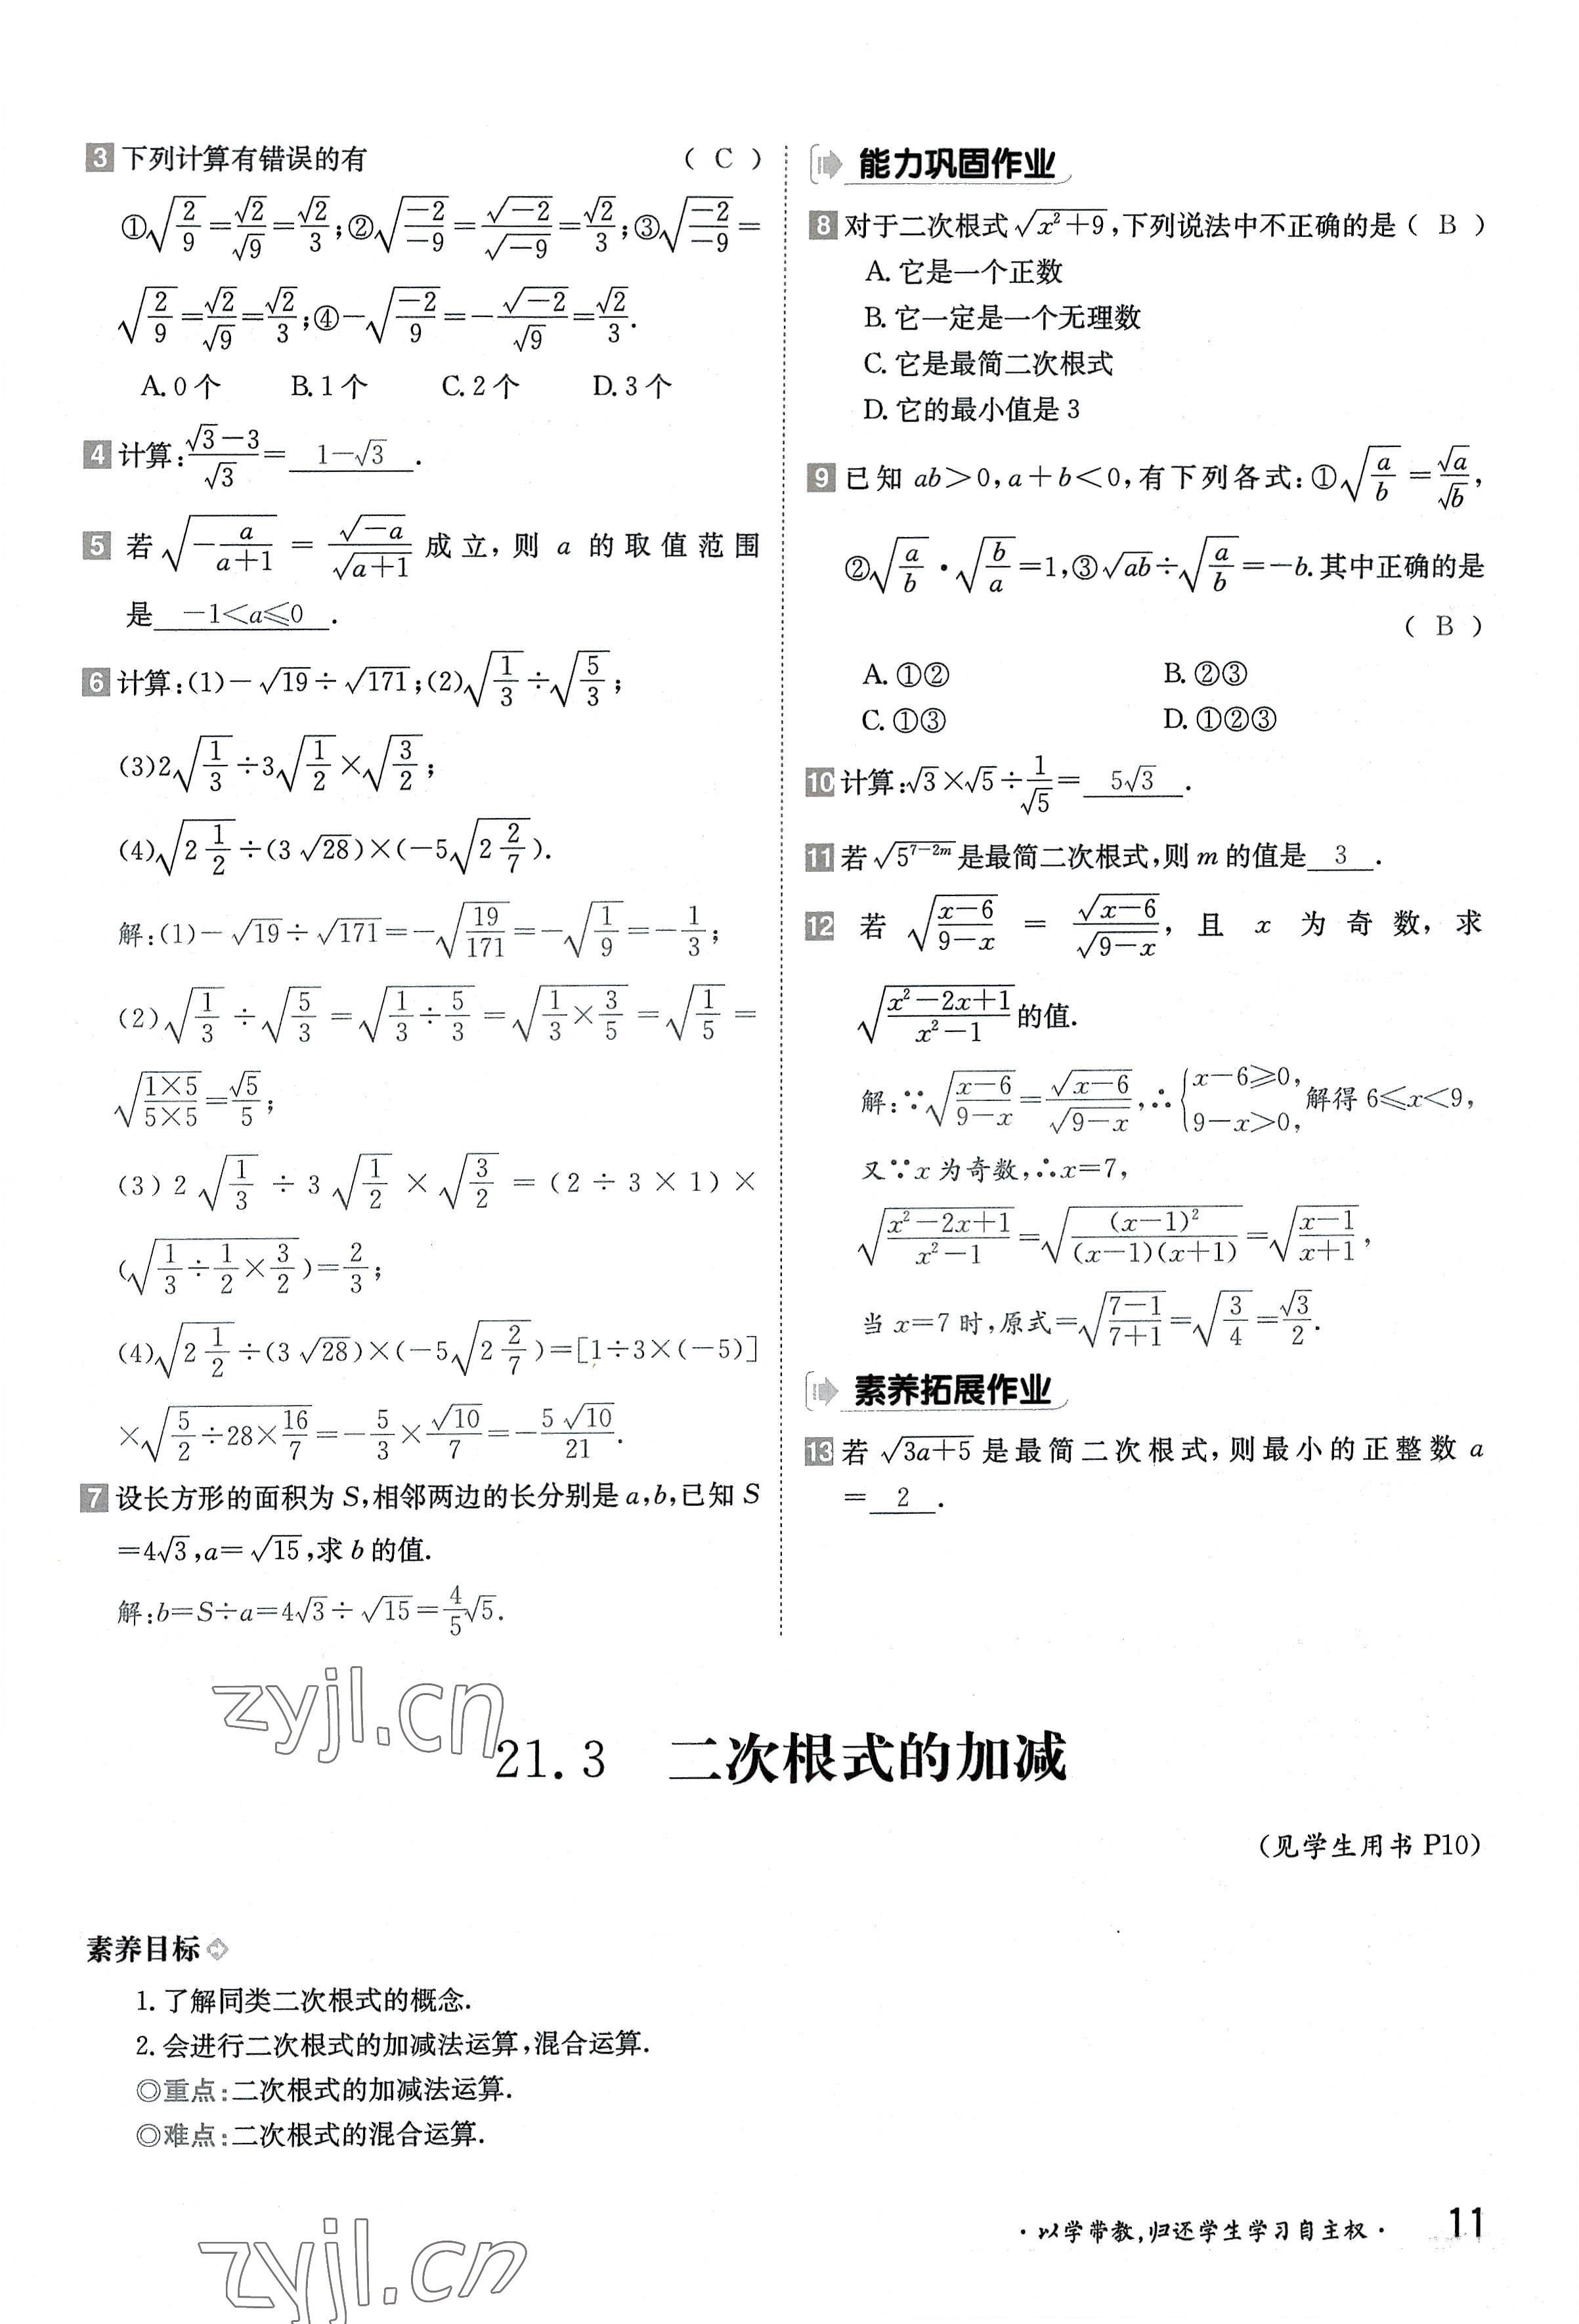 3 下列计算有错误的有 ( C )
①√(2/9)=√2/√9=√2/3;②√(-2/-9)=√-2/√-9=√2/3;③√(-2/-9)=
√(2/9)=√2/√9=√2/3;④-√(-2/9)=-√-2/√9=√2/3.
A.0个 B.1个 C.2个 D.3个
4 计算:(√3-3)/√3= 1-√3 .
5 若√(-a/(a+1))=√-a/√(a+1)成立,则a的取值范围
是 -1<a≤0 .
6 计算:(1)-√19÷√171;(2)√(1/3)÷√(5/3);
(3)2√(1/3)÷3√(1/2)×√(3/2);
(4)√(2 1/2)÷(3√28)×(-5√(2 2/7)).
解:(1)-√19÷√171=-√(19/171)=-√(1/9)=-1/3;
(2)√(1/3)÷√(5/3)=√(1/3÷5/3)=√(1/3×3/5)=√(1/5)=
√((1×5)/(5×5))=√5/5;
(3)2√(1/3)÷3√(1/2)×√(3/2)=(2÷3×1)×
(√(1/3÷1/2×3/2))=2/3;
(4)√(2 1/2)÷(3√28)×(-5√(2 2/7))=[1÷3×(-5)]
×√(5/2÷28×16/7)=-5/3×√10/7=-5√10/21.
7 设长方形的面积为S,相邻两边的长分别是a,b,已知S
=4√3,a=√15,求b的值.
解:b=S÷a=4√3÷√15=4/5√5.
能力巩固作业
8 对于二次根式√(x²+9),下列说法中不正确的是( B )
A.它是一个正数
B.它一定是一个无理数
C.它是最简二次根式
D.它的最小值是3
9 已知ab>0,a+b<0,有下列各式:①√(a/b)=√a/√b,
②√(a/b)·√(b/a)=1,③√ab÷√(a/b)=-b.其中正确的是
( B )
A.①② B.②③
C.①③ D.①②③
10 计算:√3×√5÷1/√5= 5√3 .
11 若√(5^(7-2m))是最简二次根式,则m的值是 3 .
12 若√((x-6)/(9-x))=√(x-6)/√(9-x),且x为奇数,求
√((x²-2x+1)/(x²-1))的值.
解:∵√((x-6)/(9-x))=√(x-6)/√(9-x),∴{x-6≥0, 9-x>0,解得6≤x<9,
又∵x为奇数,∴x=7,
√((x²-2x+1)/(x²-1))=√((x-1)²/((x-1)(x+1)))=√((x-1)/(x+1)),
当x=7时,原式=√((7-1)/(7+1))=√(3/4)=√3/2.
素养拓展作业
13 若√(3a+5)是最简二次根式,则最小的正整数a
= 2 .
zyjl.cn
21.3 二次根式的加减
(见学生用书P10)
素养目标
1.了解同类二次根式的概念.
2.会进行二次根式的加减法运算,混合运算.
◎重点:二次根式的加减法运算.
◎难点:二次根式的混合运算.
·以学带教,归还学生学习自主权· 11
zyjl.cn